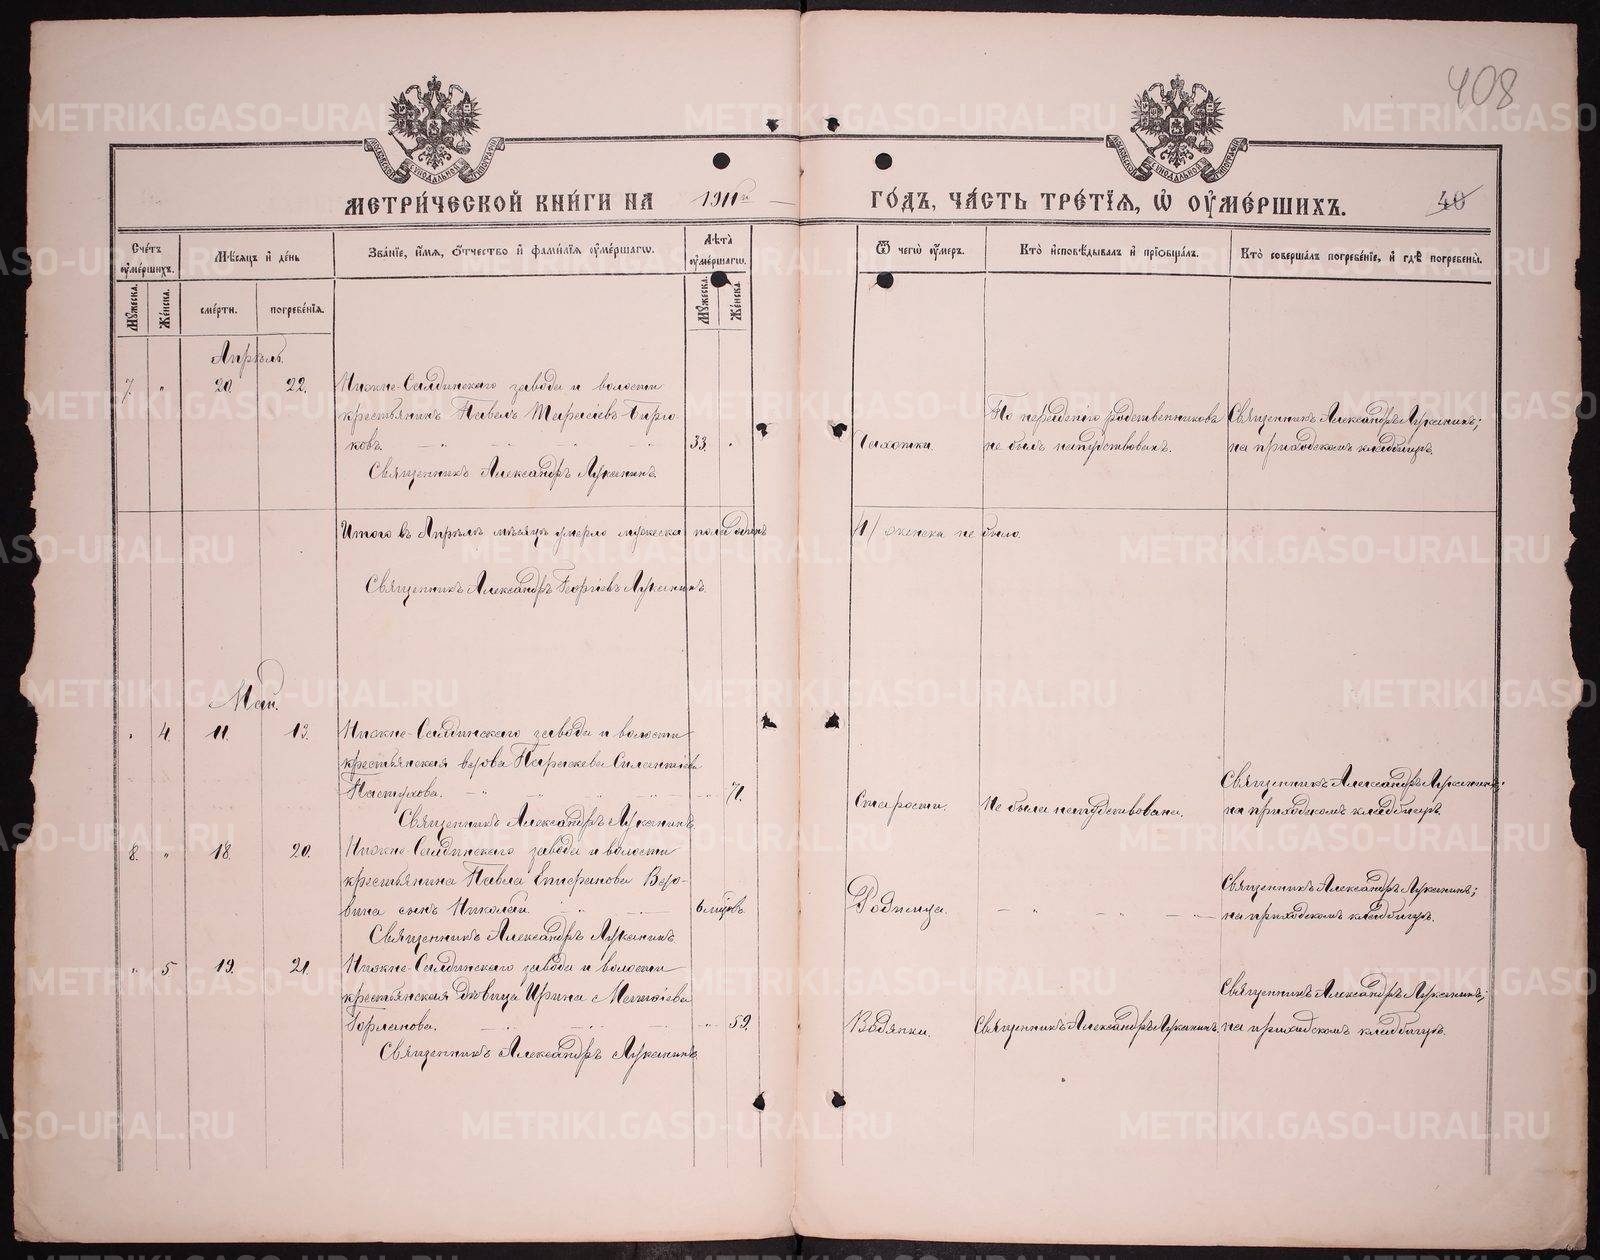 408
МЕТРИ́ЧЕСКОЙ КНИ́ГИ НА 1911й ГО́ДЪ, ЧА́СТЬ ТРЕ́ТІЯ, Ѽ ОУМЕ́РШИХЪ.
40
Сче́тъ оуме́ршихъ.
Мꙋжеска.
Же́нска.
Мѣ́сяцъ и҆ де́нь
сме́рти.
погребе́нїя.
Зва́нїе, и҆́мя, ѻ҆́тчество и҆ фами́лїя оуме́ршагѡ.
Лѣ́та оуме́ршагѡ.
Мꙋжеска.
Же́нска.
Ѿ чегѡ̀ оу́меръ.
Кто̀ и҆сповѣ́дывалъ и҆ прїѡбща́лъ.
Кто̀ соверша́лъ погребе́нїе, и҆ гдѣ̀ погребены̀.
Апрѣль.
7. " 20. 22. Нижне-Салдинскаго завода и волости
крестьянинъ Павелъ Тарасіевъ Бирю-
ковъ. 33. "
Священникъ Александръ Луканинъ.
Чахотки.
По нерадѣнію родственниковъ
не былъ напутствованъ.
Священникъ Александръ Луканинъ;
на приходскомъ кладбищѣ.
Итого въ Апрѣлѣ мѣсяцѣ умерло мужеска пола одинъ /1/ женска не было.
Священникъ Александръ Георгіевъ Луканинъ.
Май.
" 4. 11. 13. Нижне-Салдинскаго завода и волости
крестьянская вдова Параскева Силантіева
Пастухова. 71.
Священникъ Александръ Луканинъ.
Старости.
Не была напутствована.
Священникъ Александръ Луканинъ;
на приходскомъ кладбищѣ.
8. " 18. 20. Нижне-Салдинскаго завода и волости
крестьянина Павла Епифанова
вина сынъ Николай. 6 мѣсяцевъ.
Священникъ Александръ Луканинъ.
Родимца.
Священникъ Александръ Луканинъ;
на приходскомъ кладбищѣ.
" 5 19. 21. Нижне-Салдинскаго завода и волости
крестьянская дѣвица Ирина Матѳіева
Горланова. " 59.
Священникъ Александръ Луканинъ.
Водянки.
Священникъ Александръ Луканинъ.
Священникъ Александръ Луканинъ;
на приходскомъ кладбищѣ.
METRIKI.GASO-URAL.RU